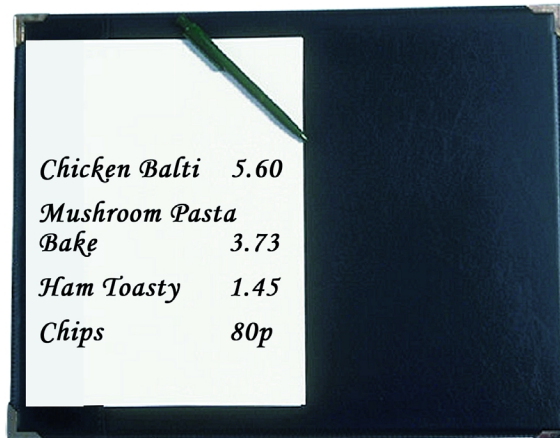 Chicken Balti 5.60
Mushroom Pasta
Bake 3.73
Ham Toasty 1.45
Chips 80p